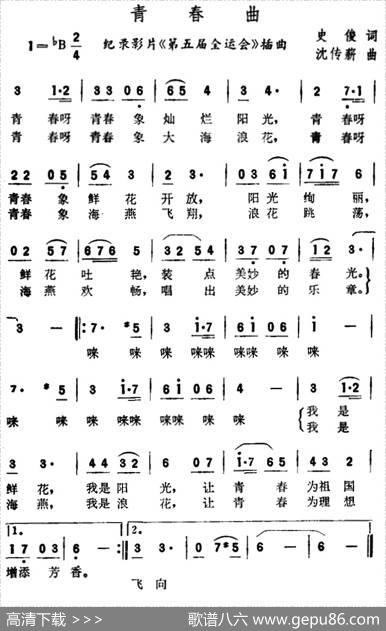 青春曲
1=♭B 2/4 纪录影片《第五届全运会》插曲 史俊 词
沈传薪 曲
3 1·2 | 3 3 0 3 0 6 | 6 5 4 | 3 0 6 | 2 7·1 |
青 春呀 青春 象 灿 烂 阳光, 青 春呀
青 春呀 青春 象 大 海 浪花, 青 春呀
2 2 0 5 | 5 4 3 | 2 - | 0 3 6 i | 7 i 7 6 |
青春 象 鲜 花 开 放, 阳光 绚 丽,
青春 象 海 燕 飞 翔, 浪花 跳 荡,
0 2 5 7 | 6 7 6 5 | 3 2 5 4 | 3 7 0 7 | 1 2 3· |
鲜 花 吐 艳, 装 点 美妙 的 春 光。
海 燕 欢 畅, 唱 出 美妙 的 乐 章。
3 - ‖: 7· #5 | 3 i·7 | 6 i 0 6 | 3 - |
咪 咪 咪 咪咪 咪咪 咪 咪
7· #5 | 3 i·7 | 6 i 0 6 | 4 - | 3 1·2 |
咪 咪 咪 咪咪 咪咪 咪 咪 我 是
我 是
3 3· | 4 4 3 2 | 6 0 7 | i·7 6 5 | 4 3 2 |
鲜 花, 我是 阳 光, 让 青 春 为祖 国
海 燕, 我是 浪 花, 让 青 春 为理 想
1. 2.
1 7 0 3 | 6 - :‖ 3 3· | 0 7 #5 | 6 - | 6 - ‖
增添 芳 香。
飞 向
高清下载 >>> 歌谱八六 www.gepu86.com